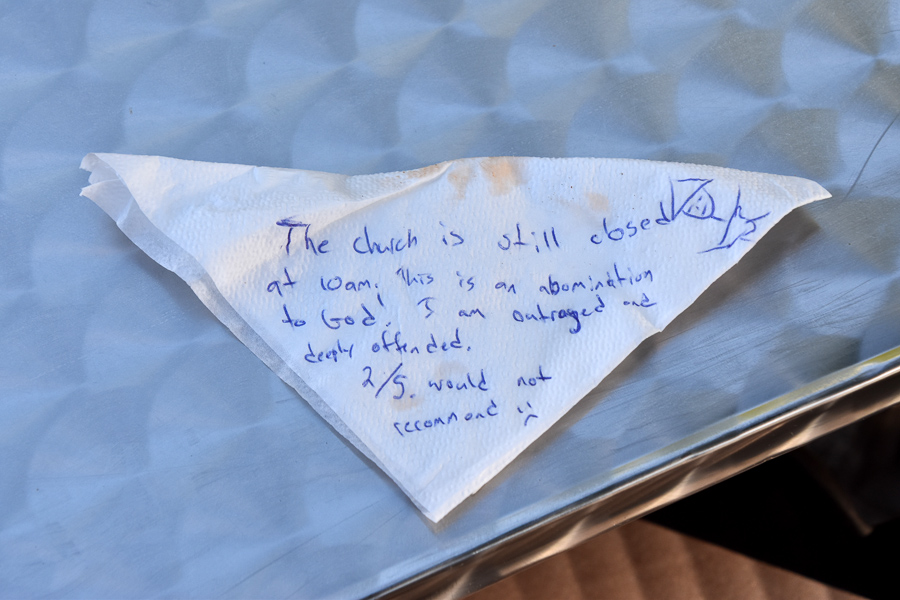 The church is still closed
at 10am. This is an abomination
to God! I am outraged and
deeply offended.
2/5. would not
recommend :(